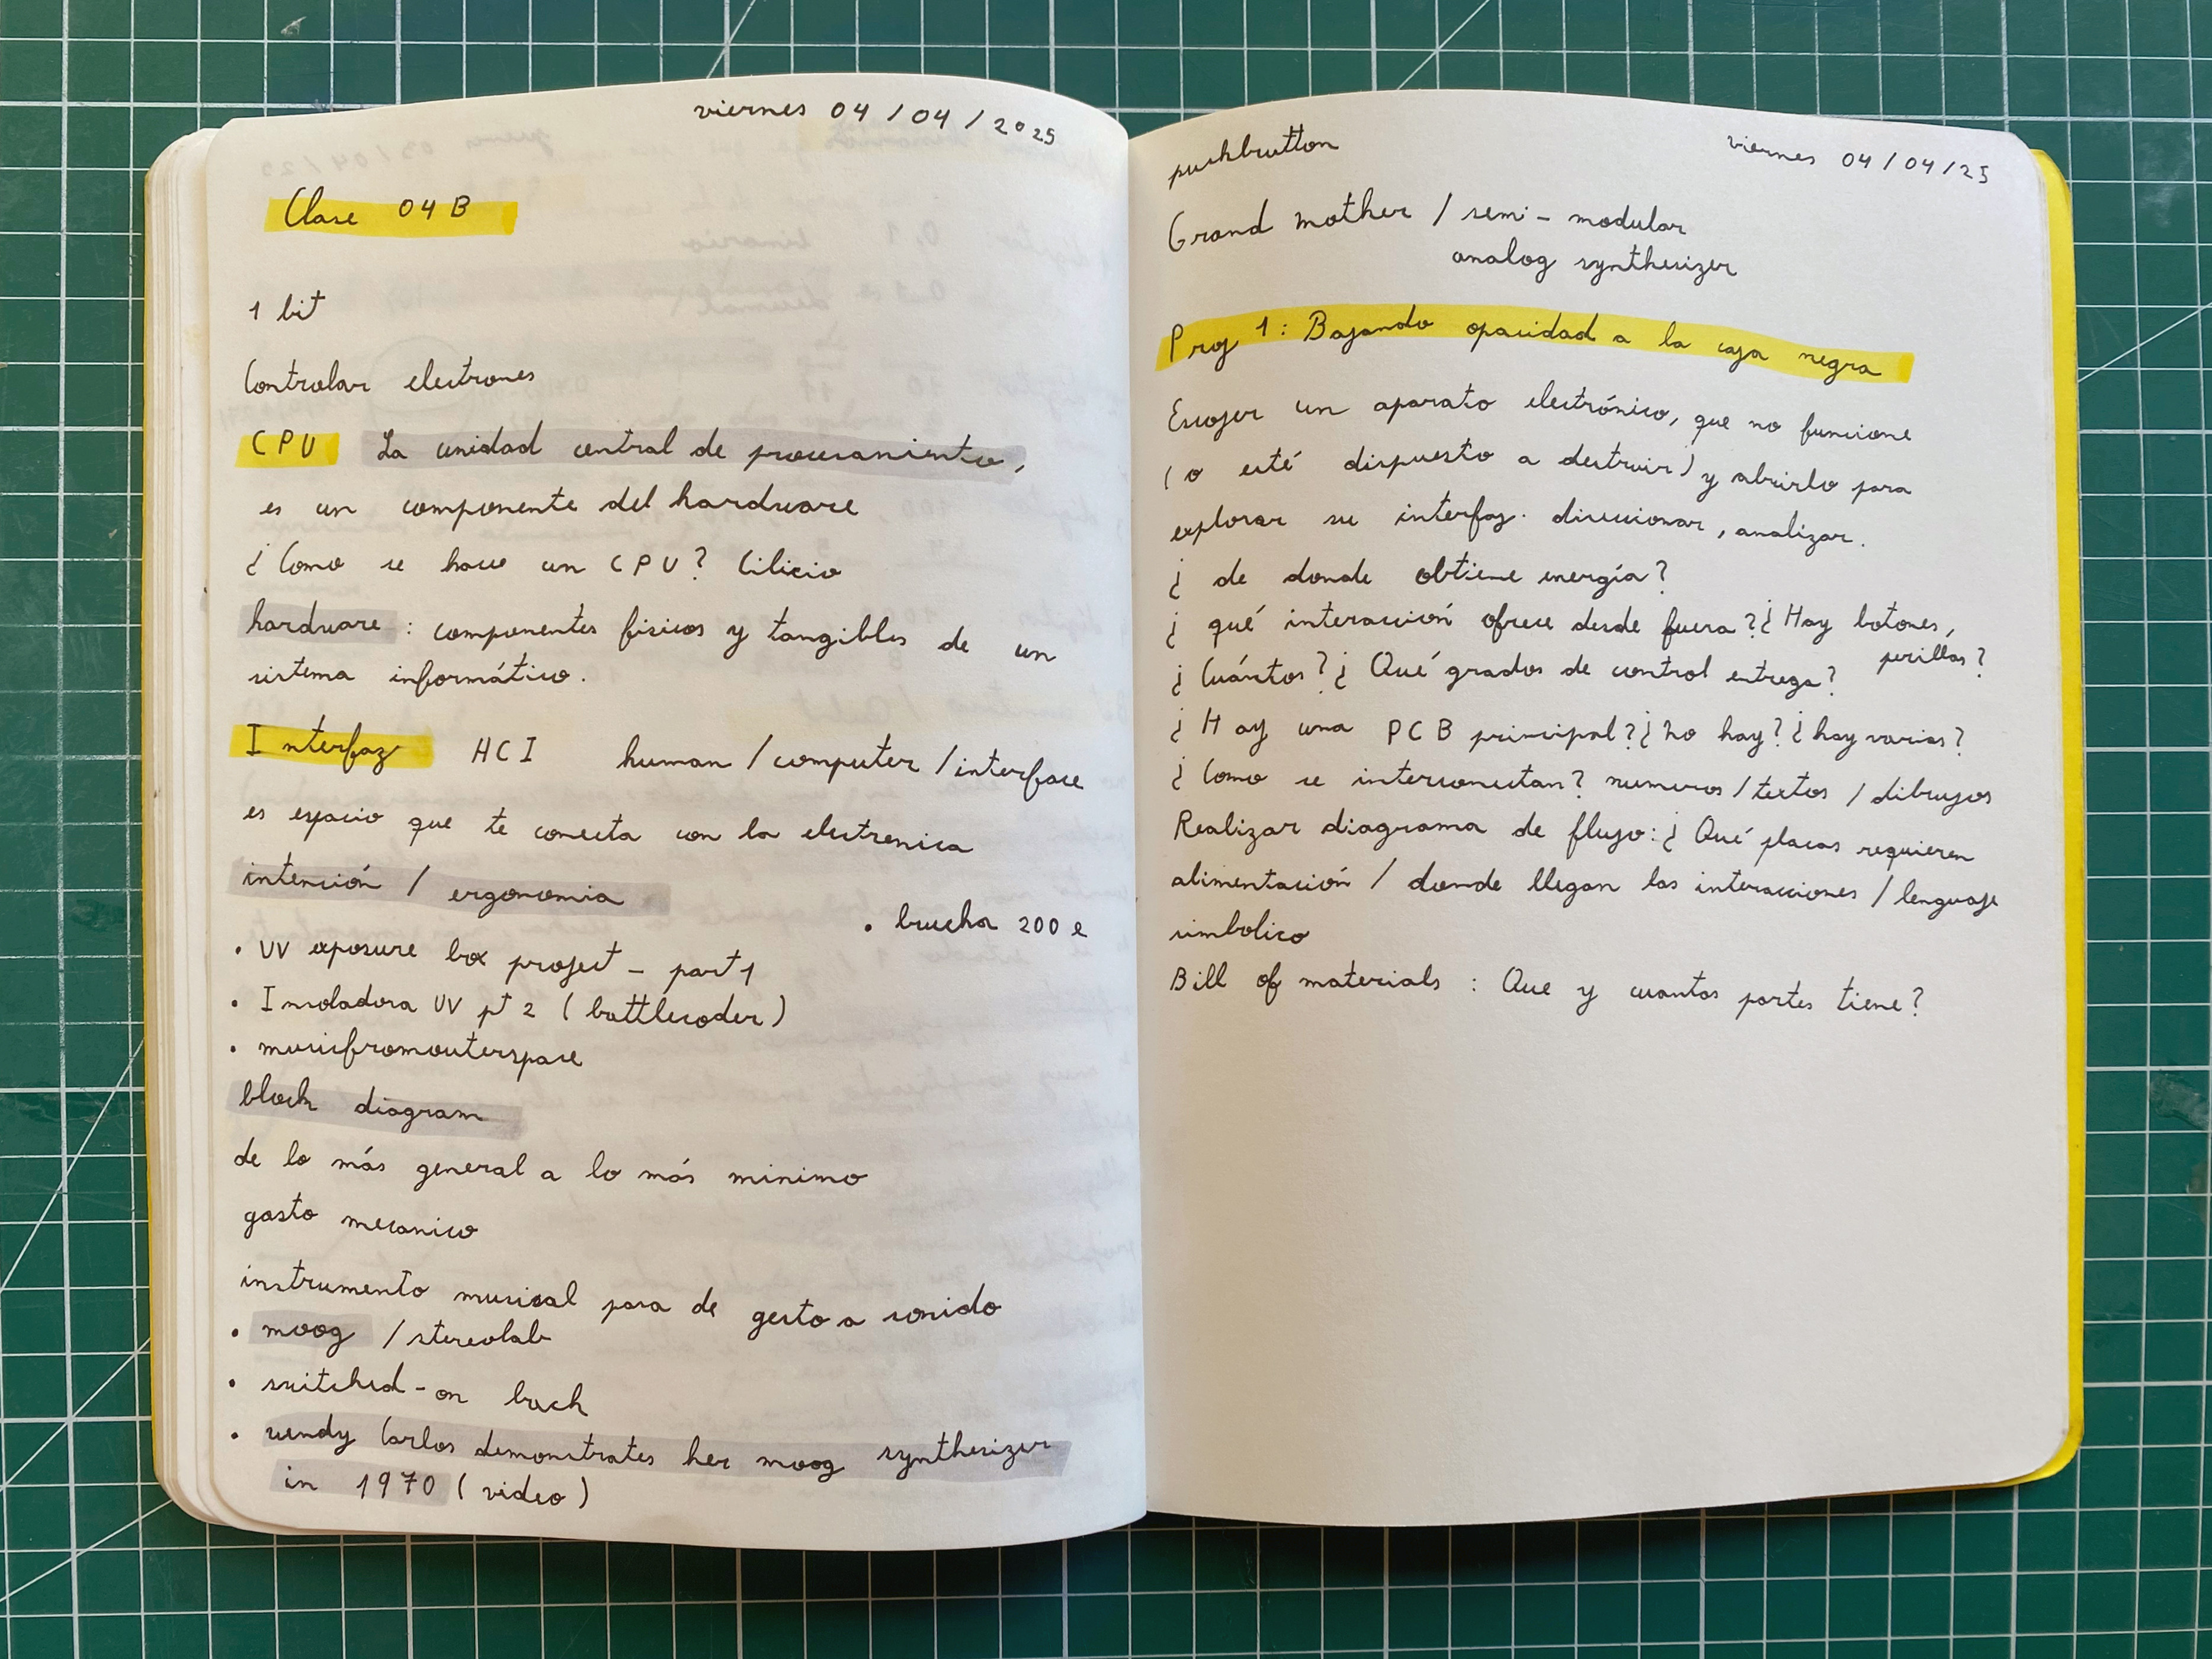 viernes 04/04/2025
Clase 04B
1 bit
Controlar electrones
CPU La unidad central de procesamiento,
es un componente del hardware
¿Como se hace un CPU? Cilicio
hardware: componentes fisicos y tangibles de un
sistema informático.
Interfaz HCI human/computer/interface
es espacio que te conecta con la electronica
intención / ergonomia
• buchla 200 e
• UV exposure box project - part 1
• Insoladora UV pt 2 (battlecoder)
• musicfromouterspace
block diagram
de lo más general a lo más minimo
gasto mecanico
instrumento musical para de gesto a sonido
• moog / stereolab
• switched-on bach
• wendy Carlos demonstrates her moog synthesizer
in 1970 (video)
viernes 04/04/25
pushbutton
Grand mother / semi-modular
analog synthesizer
Proy 1: Bajando opacidad a la caja negra
Escoger un aparato electrónico, que no funcione
(o esté dispuesto a destruir) y abrirlo para
explorar su interfaz. direccionar, analizar.
¿de donde obtiene energía?
¿qué interacción ofrece desde fuera? ¿Hay botones,
perillas?
¿Cuántos? ¿Qué grados de control entrega?
¿Hay una PCB principal? ¿no hay? ¿hay varias?
¿Como se interconectan? numeros/textos/dibujos
Realizar diagrama de flujo: ¿Qué placas requieren
alimentación / donde llegan las interacciones / lenguaje
simbolico
Bill of materials : Que y cuantas partes tiene?